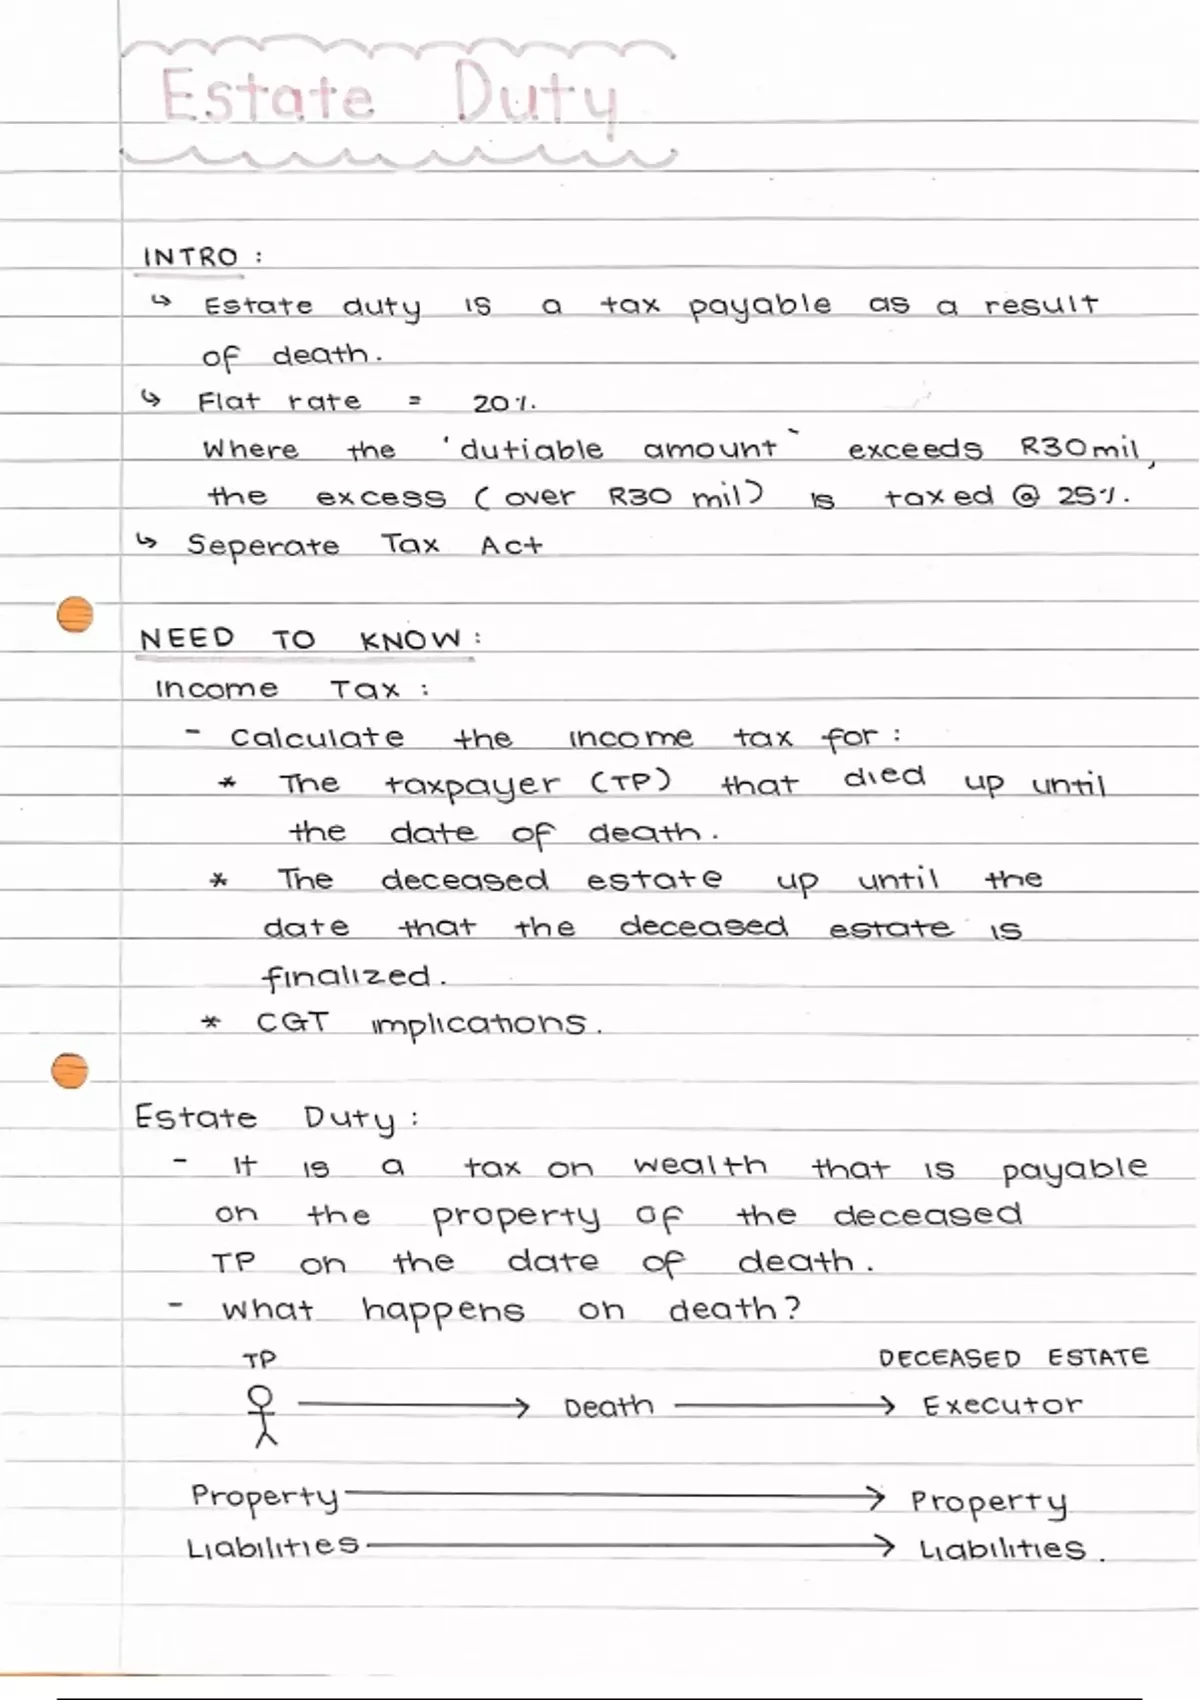 Estate Duty
INTRO :
↳ Estate duty is a tax payable as a result
of death.
↳ Flat rate = 20%.
Where the 'dutiable amount` exceeds R30mil,
the excess (over R30 mil) is taxed @ 25%.
↳ Seperate Tax Act
NEED TO KNOW :
Income Tax :
- Calculate the income tax for :
* The taxpayer (TP) that died up until
the date of death.
* The deceased estate up until the
date that the deceased estate is
finalized.
* CGT implications.
Estate Duty :
- It is a tax on wealth that is payable
on the property of the deceased
TP on the date of death.
- What happens on death?
TP DECEASED ESTATE
→ Death → Executor
Property → Property
Liabilities → Liabilities.